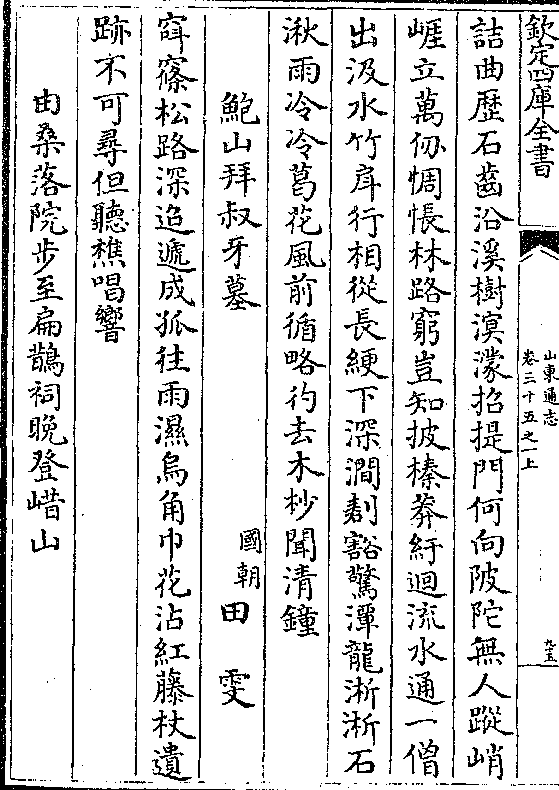 欽定四庫全書
山東通志
卷三十五之一上
九五
詰曲歷石齒沿溪樹溟濛招提門何向陂陀無人蹤峭
崕立萬仞惆悵林路窮豈知披榛莽紆迴流水通一僧
出汲水竹扉行相從長綆下深澗劃豁驚潭龍淅淅石
湫雨冷冷葛花風前循略彴去木杪聞清鐘
鮑山拜叔牙墓
國朝田雯
窅窱松路深迢遞成孤往雨濕烏角巾花沾紅藤杖遺
跡不可尋但聽樵唱響
由桑落院步至扁鵲祠晚登㟙山